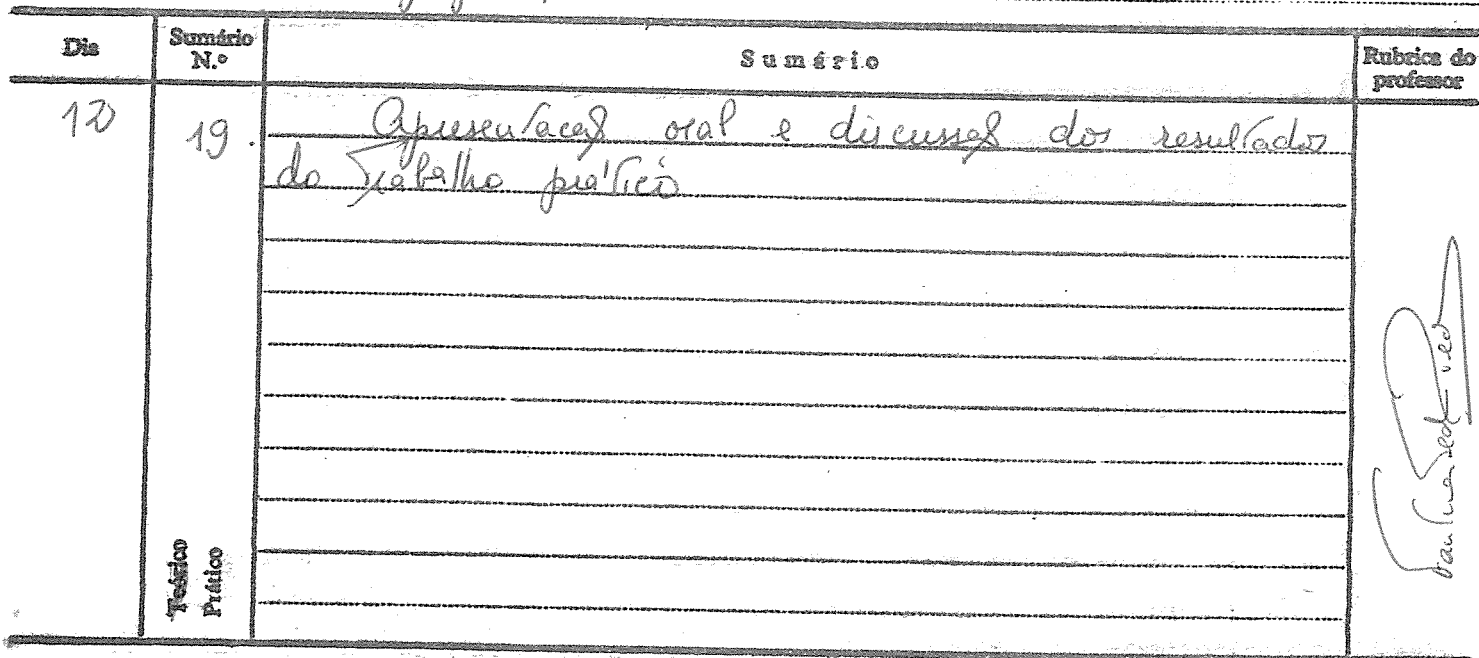 Dia
Sumário N.º
Sumário
Rubrica do professor
12
19.
Apresentação oral e discussão dos resultados
do Trabalho prático
Teórico
Prático